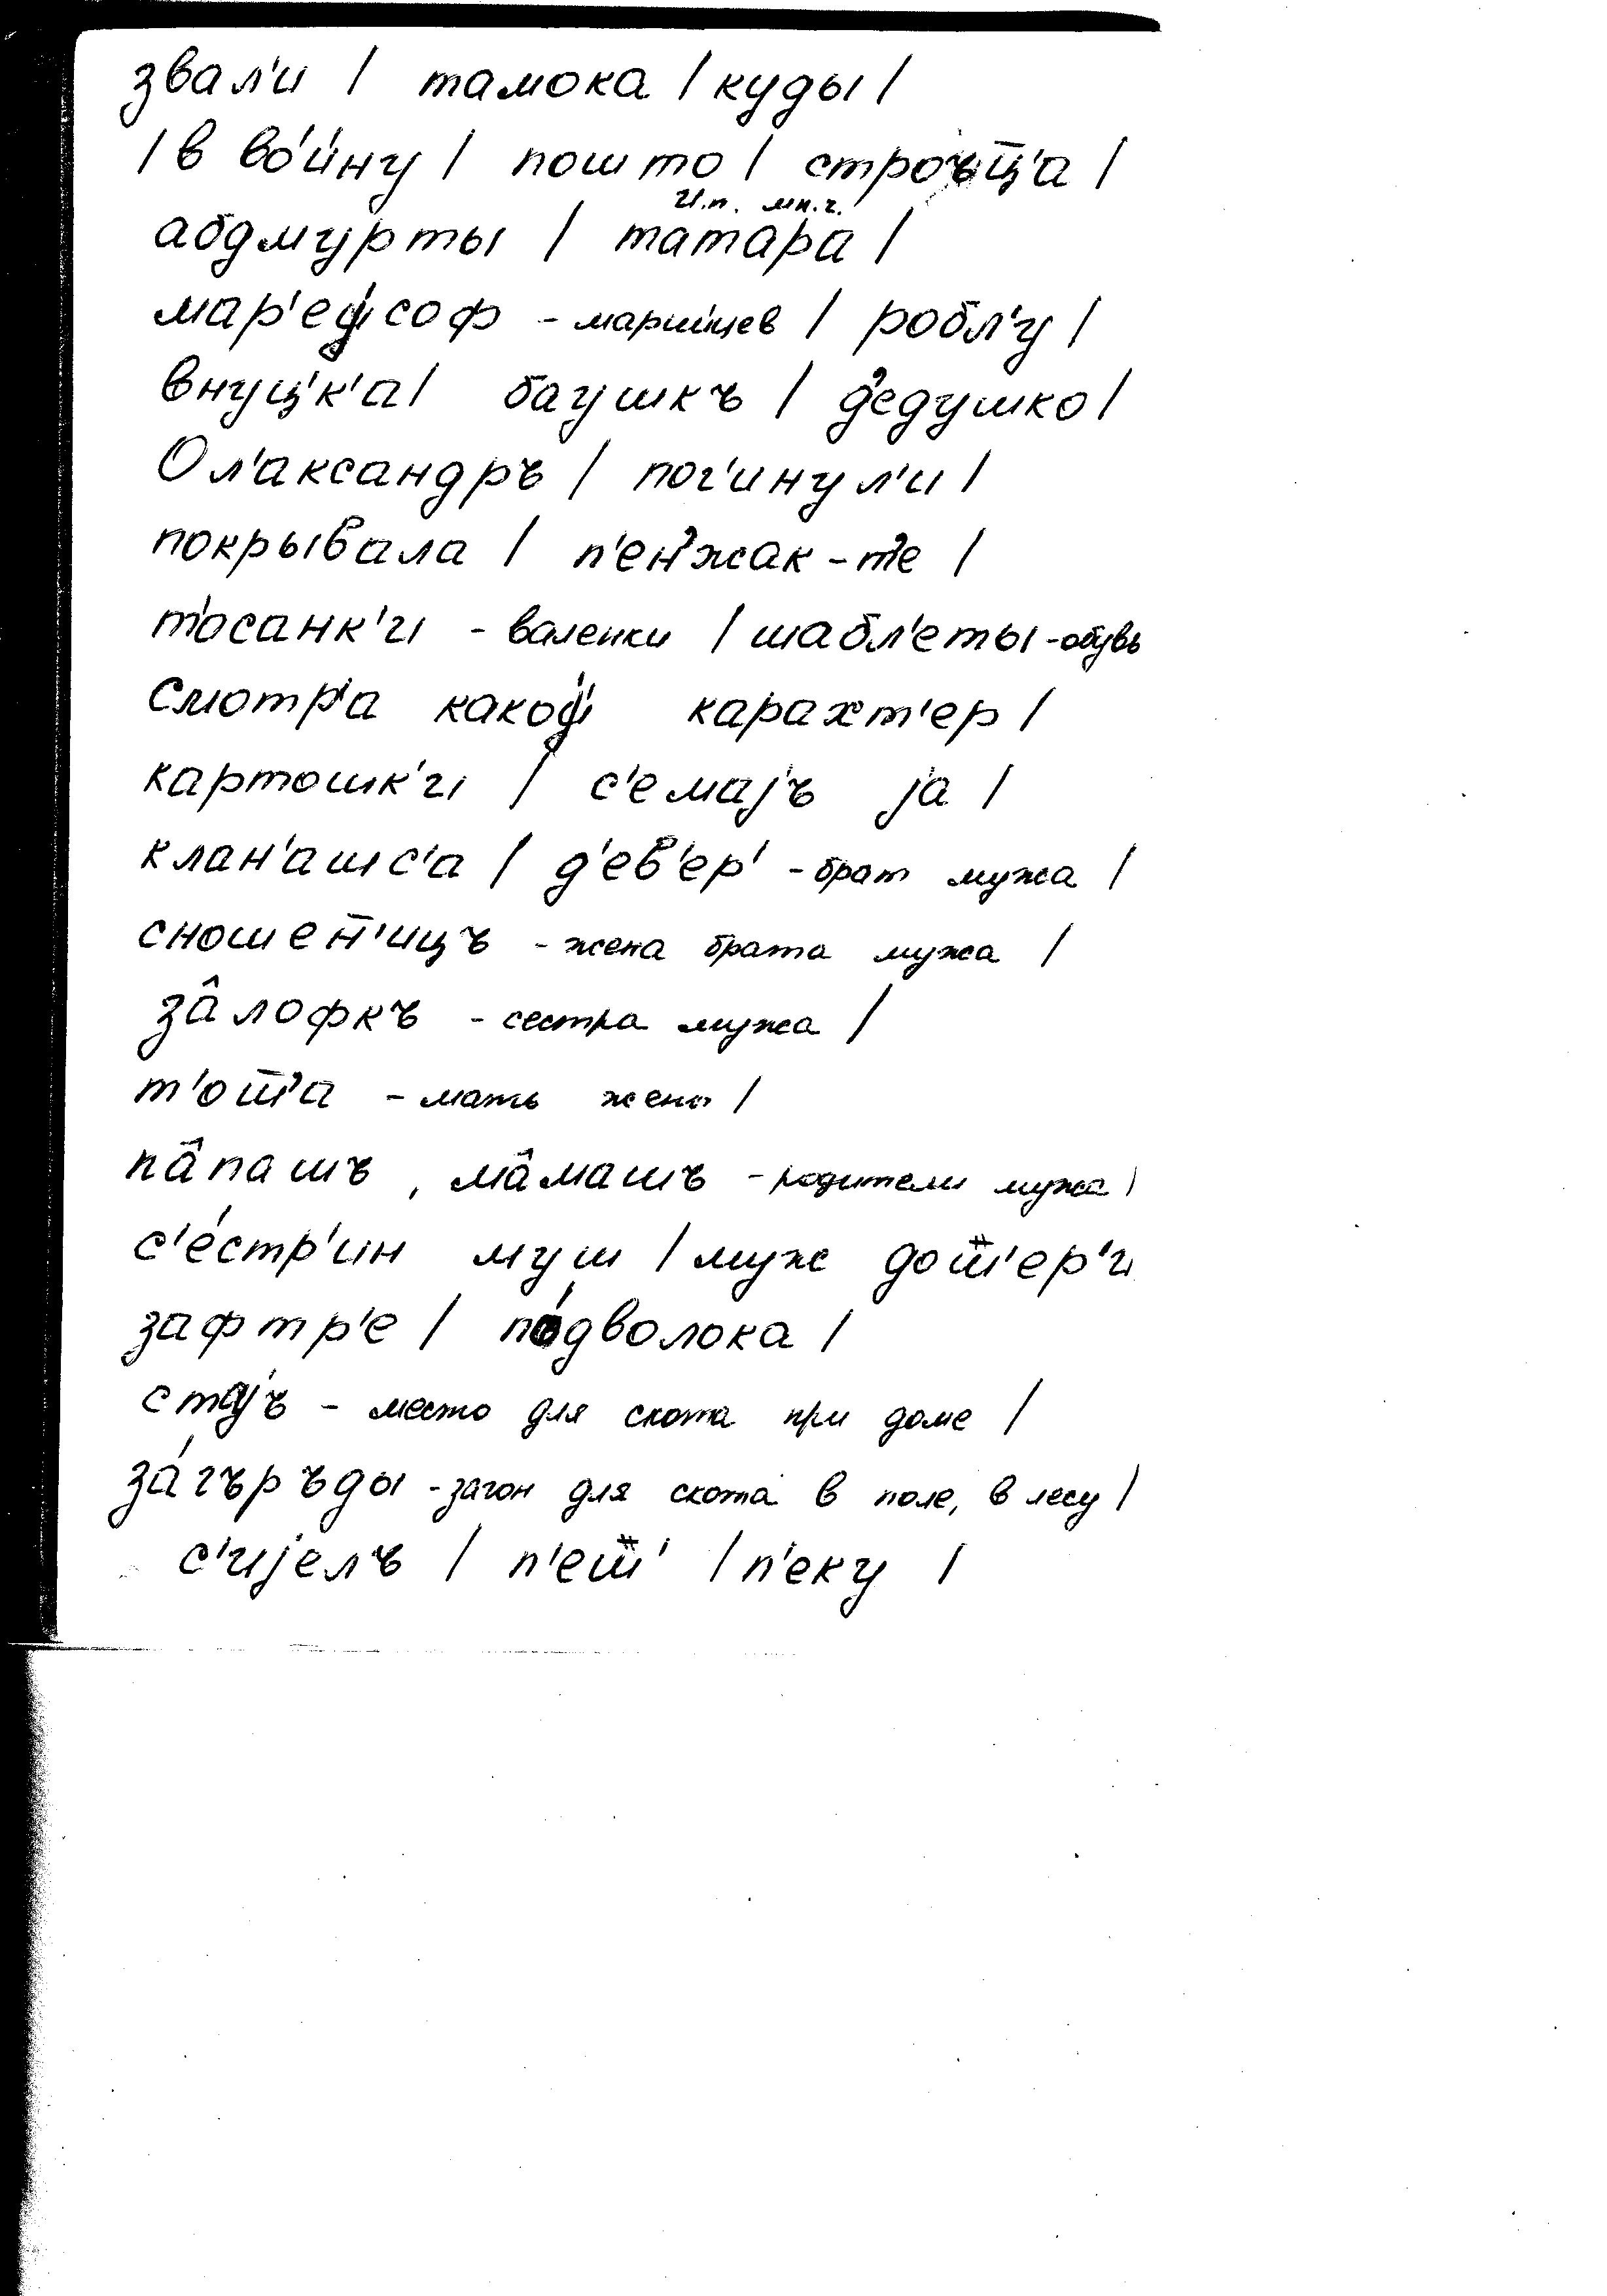 звал'и | тамока | куды |
| в во́йну | пошто | строъц̅'а |
и.п. мн.ч.
абдмурты | тата́ра |
мар'еj̇соф - марийцев | робл'у |
внуц'к'а | баушкъ | д'едушко |
Ол'аксандръ | пог'инул'и |
покрывала | п'ен'жак - т'е |
т'осанк'и - валенки | шабл'еты - обувь
смотр'а како́j карахт'ер |
картошк'и | с'емаjъ jа |
клан'аш с'а | д'ев'ер' - брат мужа |
сношен̅'ицъ - жена брата мужа |
за̂лофкъ - сестра мужа |
т'от̅'а - мать жены |
па̂пашъ, ма̂машъ - родители мужа |
с'е́стр'ин муш | муж дош̅'ер'и
зафтр'е | по́дволока |
стаjъ - место для скота при доме |
за́гъръды - загон для скота в поле, в лесу |
с'иjелъ | п'еш̅' | п'еку |